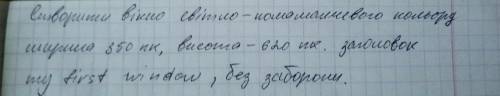 Створити вікно світло-помаранчевого кольору
ширина 350 пк, висота - 620 пк. заголовок
my first window, без заборони.